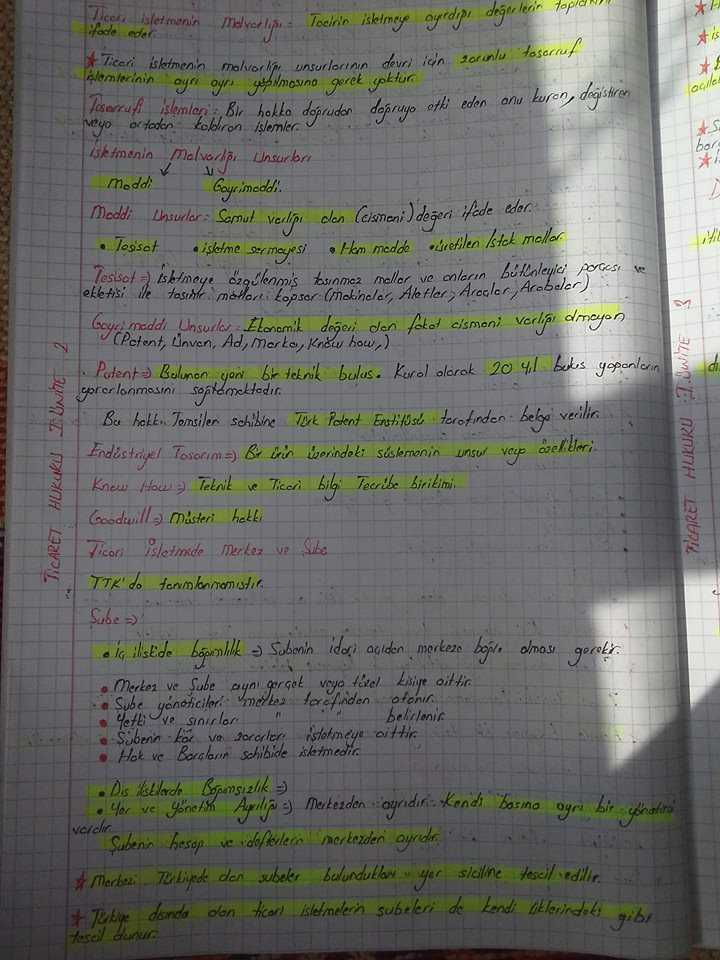 Ticari işletmenin Malvarlığı = Tacirin işletmeye ayırdığı değerlerin toplamını
ifade eder.
★ Ticari işletmenin malvarlığı unsurlarının devri için zorunlu tasarruf
işlemlerinin ayrı ayrı yapılmasına gerek yoktur.
Tasarrufi işlemleri : Bir hakka doğrudan doğruya etki eden onu kuran, değiştiren
veya ortadan kaldıran işlemler.
işletmenin Malvarlığı Unsurları
Maddi Gayrimaddi.
Maddi Unsurlar = Somut varlığı olan (cismani) değeri ifade eder.
• Tesisat • işletme sermayesi • Ham madde • üretilen / stok mallar
Tesisat => İşletmeye özgülenmiş taşınmaz mallar ve onların bütünleyici parçası ve
eklentisi ile taşınır malları kapsar (Makinalar, Aletler, Araçlar, Arabalar)
Gayri maddi Unsurlar = Ekonomik değeri olan fakat cismani varlığı olmayan
(Patent, Ünvan, Ad, Marka, Know how,)
• Patent => Bulunan yani bir teknik buluş. Kural olarak 20 yıl buluş yapanların
yararlanmasını sağlamaktadır.
Bu hakkı Temsilen sahibine Türk Patent Enstitüsü tarafından belge verilir.
Endüstriyel Tasarım => Bir ürün üzerindeki süslemenin unsur veya özellikleri.
Know How => Teknik ve Ticari bilgi Tecrübe birikimi.
Goodwill => Müşteri hakkı
Ticari İşletmede Merkez ve Şube
TTK'da tanımlanmamıştır.
Şube =>
• İç ilişkide bağımlılık => Şubenin idari açıdan merkeze bağlı olması gerekir.
• Merkez ve Şube aynı gerçek veya tüzel kişiye aittir.
• Şube yöneticileri merkez tarafından atanır.
• Yetki ve sınırları " " belirlenir.
• Şubenin kâr ve zararları işletmeye aittir.
• Hak ve Borçların sahibide işletmedir.
• Dış ilişkilerde Bağımsızlık =>
• Yer ve Yönetim Ayrılığı => Merkezden ayrıdır. Kendi başına ayrı bir yönetimi
vardır.
Şubenin hesap ve defterleri merkezden ayrıdır.
★ Merkezi Türkiyede olan şubeler bulundukları yer siciline tescil edilir.
★ Türkiye dışında olan ticari işletmelerin şubeleri de kendi
tescil olunur.
TİCARET HUKUKU I. ÜNİTE 2
TİCARET HUKUKU I. ÜNİTE 3